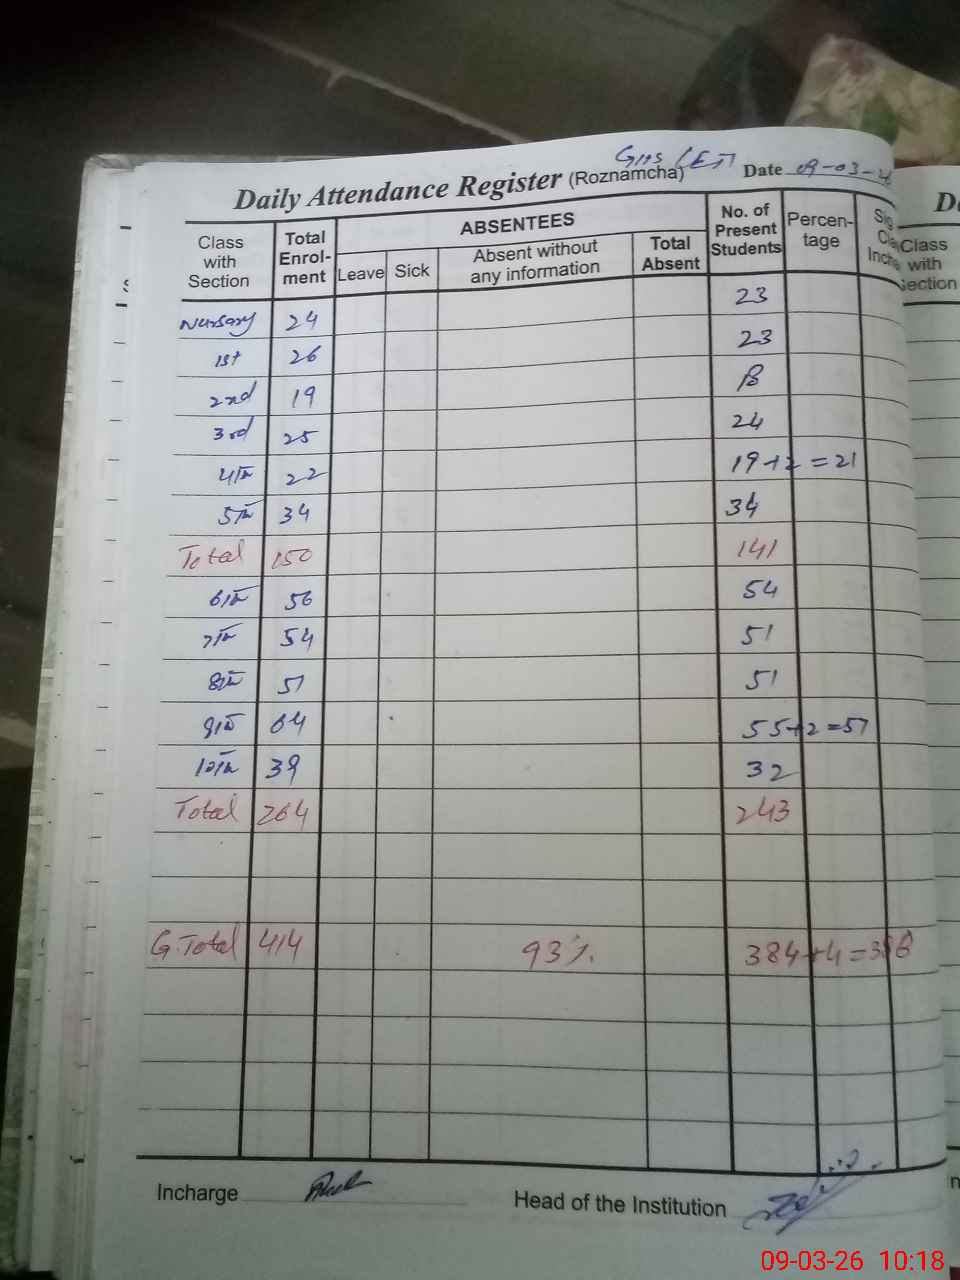 GHS (EJ)
Daily Attendance Register (Roznamcha) Date 09-03-26
Class with Section Total Enrol-ment ABSENTEES Leave Sick Absent without any information Total Absent No. of Present Students Percen-tage
Nursary 24 23
1st 26 23
2nd 19
3rd 25 24
4th 22 19+2=21
5th 34 34
Total 150 141
6th 56 54
7th 54 51
8th 51 51
9th 64 55+2=57
10th 39 32
Total 264 243
G.Total 414 93%. 384+4=388
Incharge
Head of the Institution
Class with Section
09-03-26 10:18